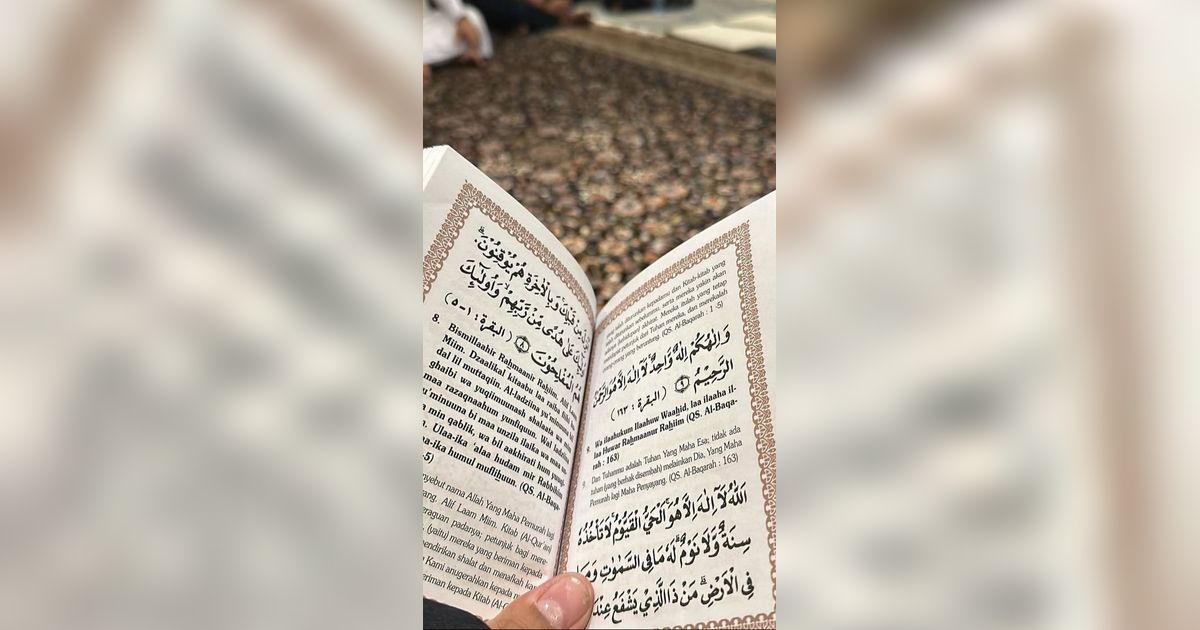 وَبِالْاٰخِرَةِ هُمْ يُوْقِنُوْنَۗ.
عَلٰى هُدًى مِّنْ رَّبِّهِمْ ۙ وَاُولٰۤىِٕكَ
الْمُفْلِحُوْنَ ۝٨ ( البقرة : ١-٥ )
8. Bismillaahir Rahmaanir Rahiim. Alif Laam
Miim. Dzaalikal kitaabu laa raiba fiihi
dal lil muttaqiin. Al-ladziina yu'minuuna
ghalbi wa yuqiimuunash shalaata wa mim
maa razaqnaahum yunfiquun. Wal ladziina
u'minuuna bi maa unzila ilaika wa maa un
a min qablik, wa bil aakhirati hum yuuqi
. Ulaa-ika 'alaa hudam mir Rabbihim
aa-ika humul muflihuun. (QS. Al-Baqa-
-5)
nyebut nama Allah Yang Maha Pemurah lagi
ang. Alif Laam Miim. Kitab (Al-Qur'an)
eraguan padanya; petunjuk bagi mere-
, (yaitu) mereka yang beriman kepada
endirikan shalat dan menafkah kan
Kami anugerahkan kepada
eriman kepada Kitab (Al-Q
yang telah diturunkan kepadamu dan Kitab-kitab yang
telah diturunkan sebelummu, serta mereka yakin akan
adanya (kehidupan) akhirat. Mereka itulah yang tetap
mendapat petunjuk dari Tuhan mereka, dan merekalah
orang-orang yang beruntung. (QS. Al-Baqarah : 1 -5)
وَاِلٰهُكُمْ اِلٰهٌ وَّاحِدٌۚ لَآ اِلٰهَ اِلَّا هُوَ الرَّحْمٰنُ
الرَّحِيْمُ ۝٩ ( البقرة : ١٦٣ )
9. Wa ilaahukum Ilaahuw Waahid, laa ilaaha il-
laa Huwar Rahmaanur Rahiim (QS. Al-Baqa-
rah : 163)
9. Dan Tuhanmu adalah Tuhan Yang Maha Esa; tidak ada
tuhan (yang berhak disembah) melainkan Dia, Yang Maha
Pemurah lagi Maha Penyayang. (QS. Al-Baqarah : 163)
اَللّٰهُ لَآ اِلٰهَ اِلَّا هُوَۚ اَلْحَيُّ الْقَيُّوْمُ ەۚ لَا تَأْخُذُهٗ
سِنَةٌ وَّلَا نَوْمٌۗ لَهٗ مَا فِى السَّمٰوٰتِ وَمَا
فِى الْاَرْضِۗ مَنْ ذَا الَّذِيْ يَشْفَعُ عِنْدَ